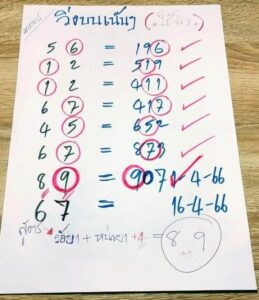 วิ่งบนเน้นๆ
5 6 = 196 ✓
1 2 = 519 ✓
1 2 = 411 ✓
6 7 = 417 ✓
4 5 = 652 ✓
6 7 = 873 ✓
8 9 = 907 1-4-66
6 7 = 16-4-66
สูตร ร้อย + หน่วย + 4 = 8 9
+1